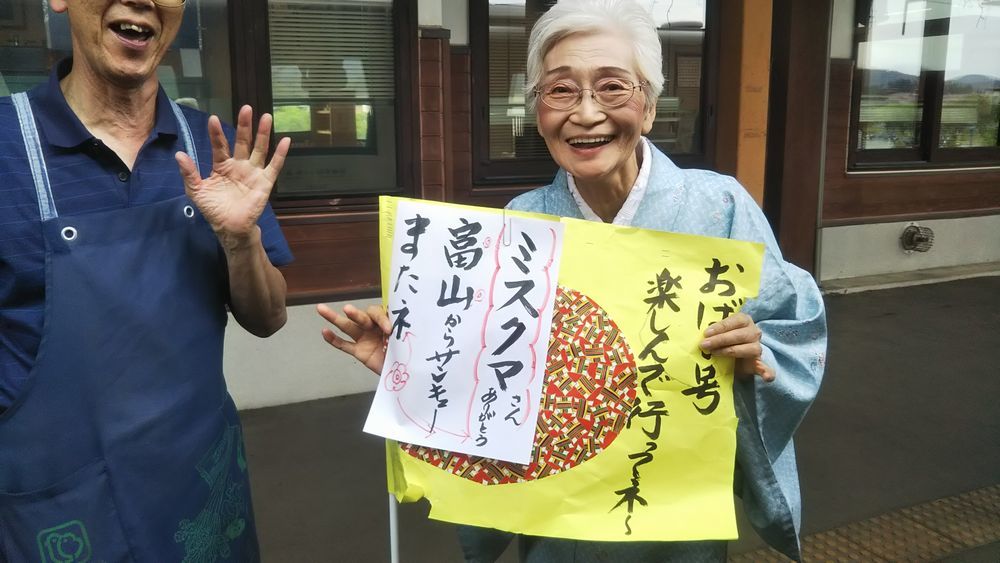 おばこ号
楽しんで行ってネ〜
ミスクマさん
ありがとう
富山からサンキュー
またネ